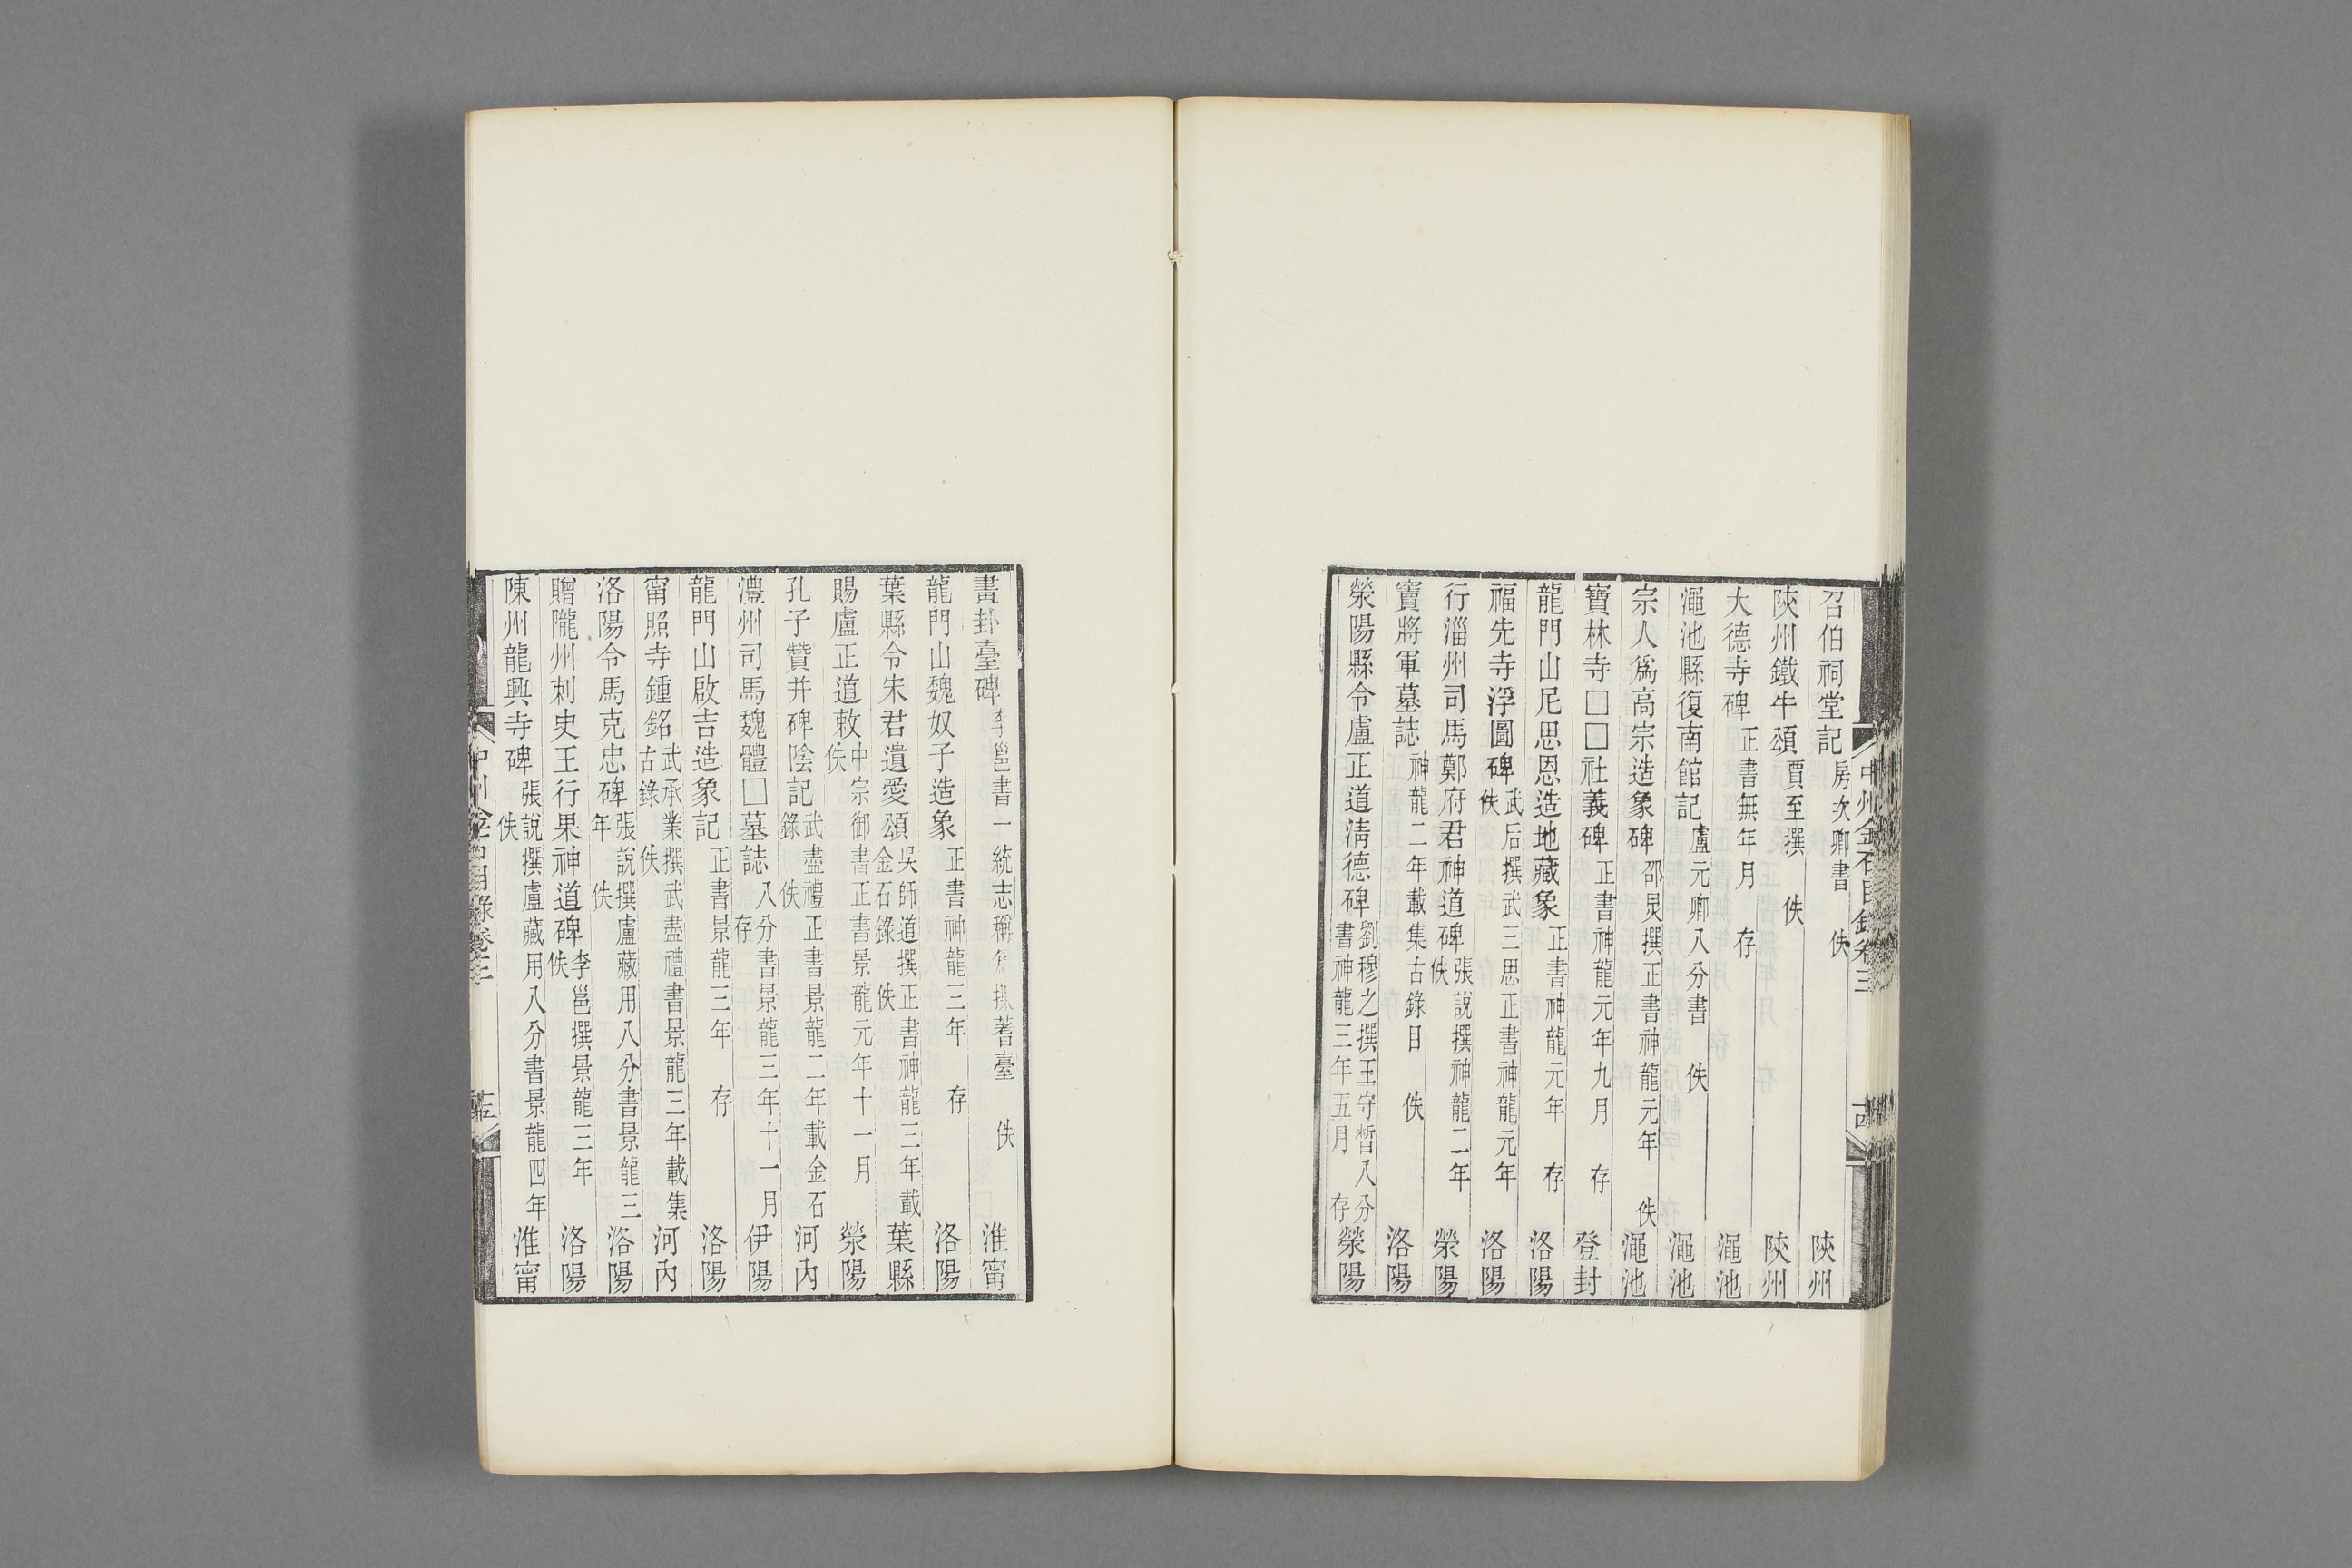 召伯祠堂記 房次卿書 佚 陝州
陝州鐵牛頌 賈至撰 佚 陝州
大德寺碑 正書無年月 存 澠池
澠池縣復南館記 盧元卿八分書 佚 澠池
宗人爲高宗造象碑 邵炅撰正書神龍元年 佚 澠池
寶林寺□□社義碑 正書神龍元年九月 存 登封
龍門山尼思恩造地藏象 正書神龍元年 存 洛陽
福先寺浮圖碑 武后撰武三思正書神龍元年 佚 洛陽
行淄州司馬鄭府君神道碑 張說撰神龍二年 佚 滎陽
竇將軍墓誌 神龍二年載集古錄目 佚 洛陽
滎陽縣令盧正道淸德碑 劉穆之撰王守哲八分書神龍三年五月 存 滎陽
中州金石目錄卷三 十四
畫卦臺碑 李邕書一統志稱爲揲蓍臺 佚 淮甯
龍門山魏奴子造象 正書神龍三年 存 洛陽
葉縣令朱君遺愛頌 吳師道撰正書神龍三年載金石錄 佚 葉縣
賜盧正道敕 中宗御書正書景龍元年十一月 佚 滎陽
孔子贊并碑陰記 武盡禮正書景龍二年載金石錄 佚 河內
澧州司馬魏體□墓誌 八分書景龍三年十一月 存 伊陽
龍門山啟吉造象記 正書景龍三年 存 洛陽
甯照寺鍾銘 武承業撰武盡禮書景龍三年載集古錄 佚 河內
洛陽令馬克忠碑 張說撰盧藏用八分書景龍三年 佚 洛陽
贈隴州刺史王行果神道碑 李邕撰景龍三年 佚 洛陽
陳州龍興寺碑 張說撰盧藏用八分書景龍四年 佚 淮甯
中州金石目錄卷三